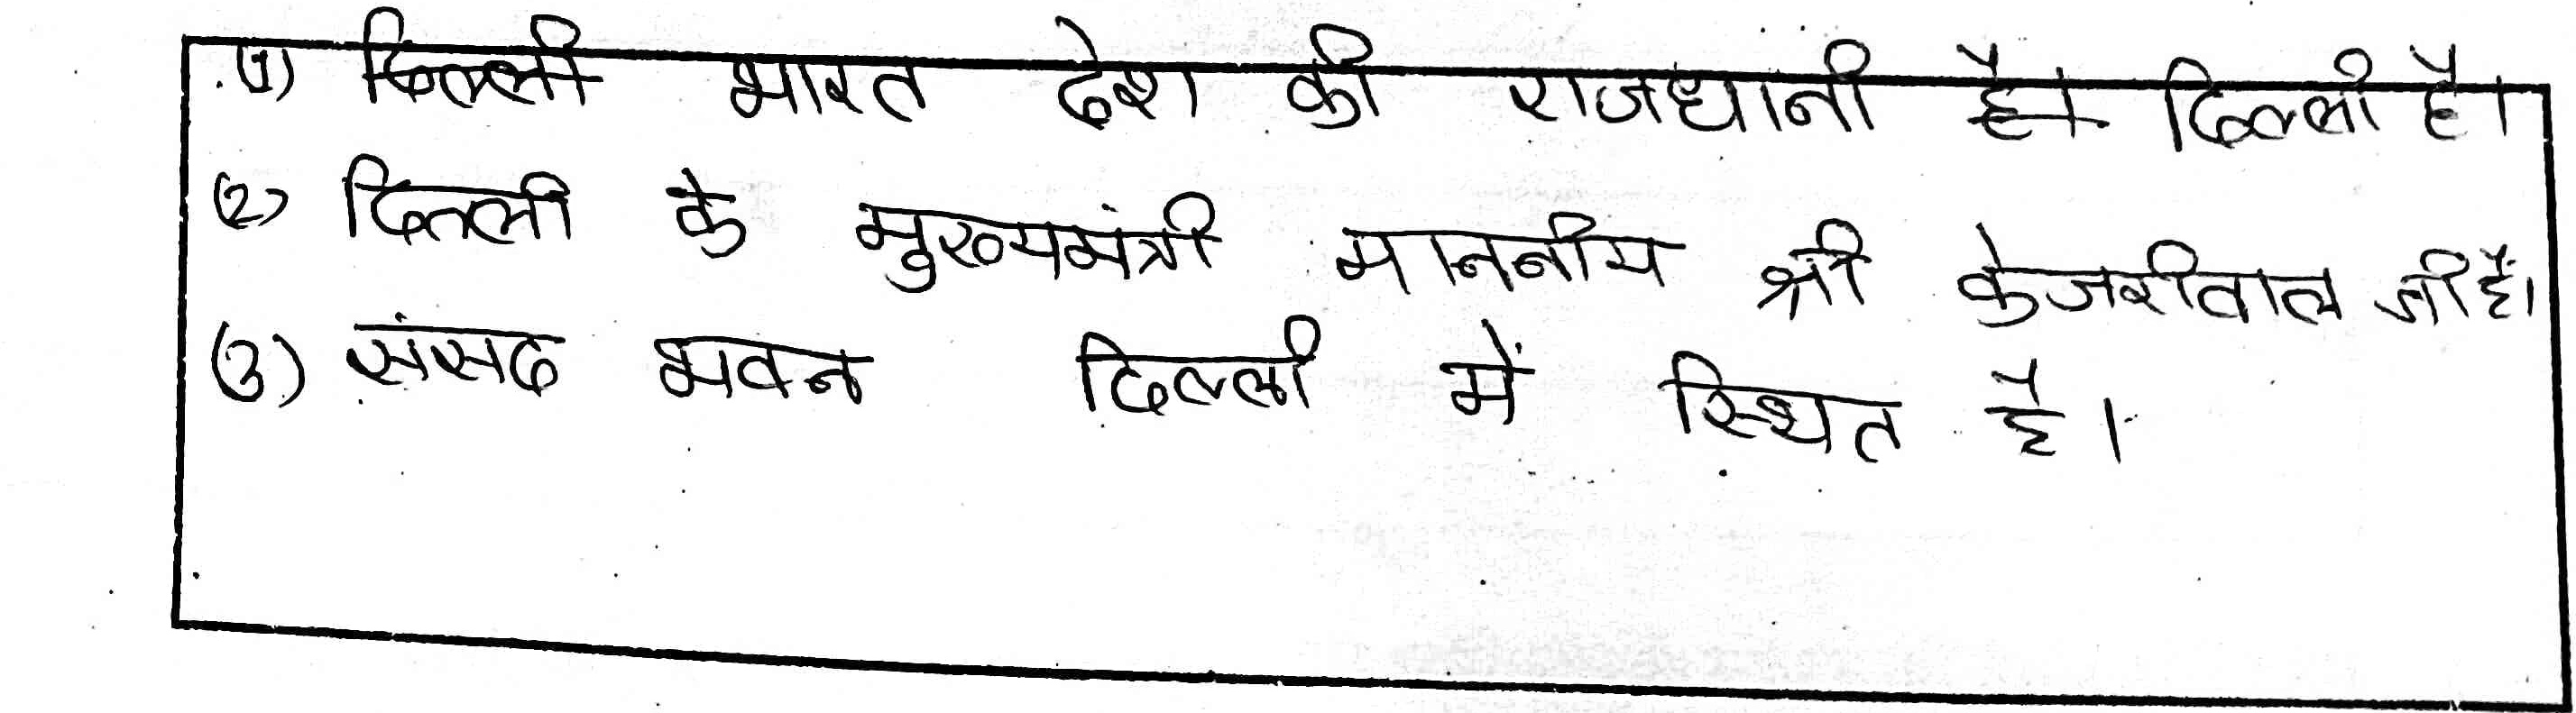 (1) दिल्ली भारत देश की राजधानी है। दिल्ली है।
(2) दिल्ली के मुख्यमंत्री माननीय श्री केजरीवाल जी हैं।
(3) संसद भवन दिल्ली में स्थित है।